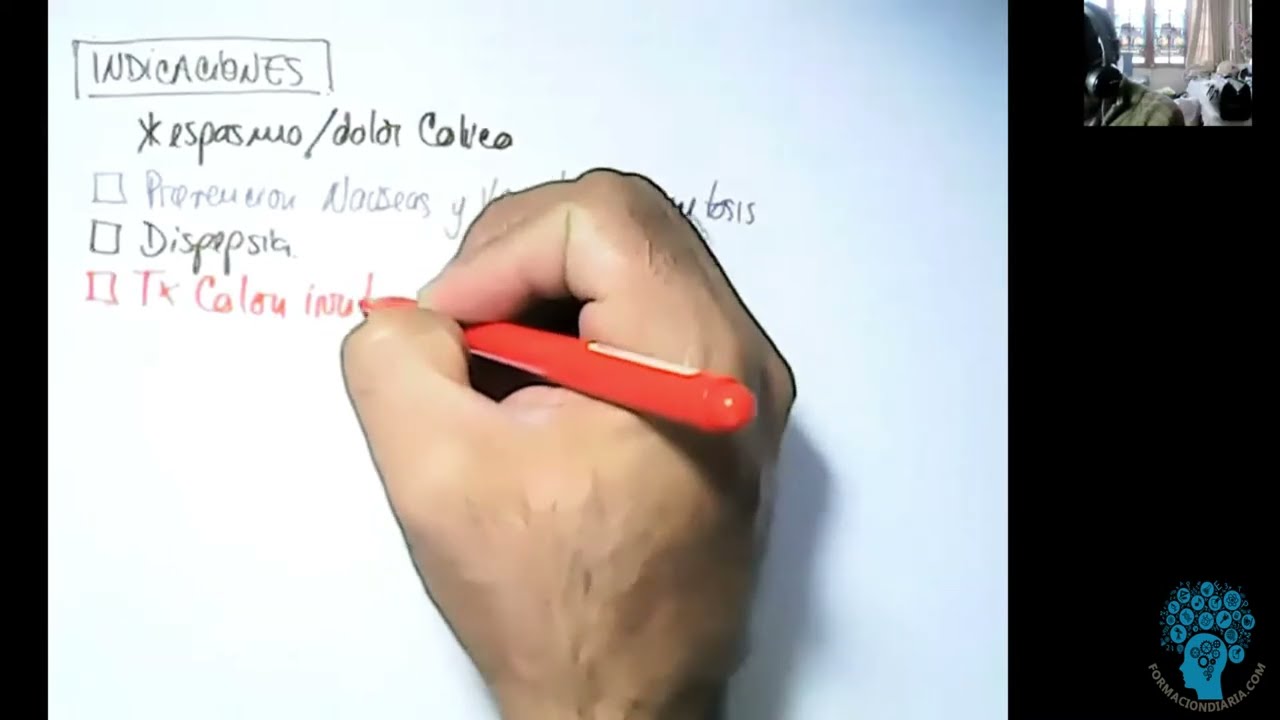 INDICACIONES
* espasmo/dolor Colico
□ Prevencion Nauseas y
□ Dispepsia.
□ Tx Colon
FORMACIONDIARIA.COM